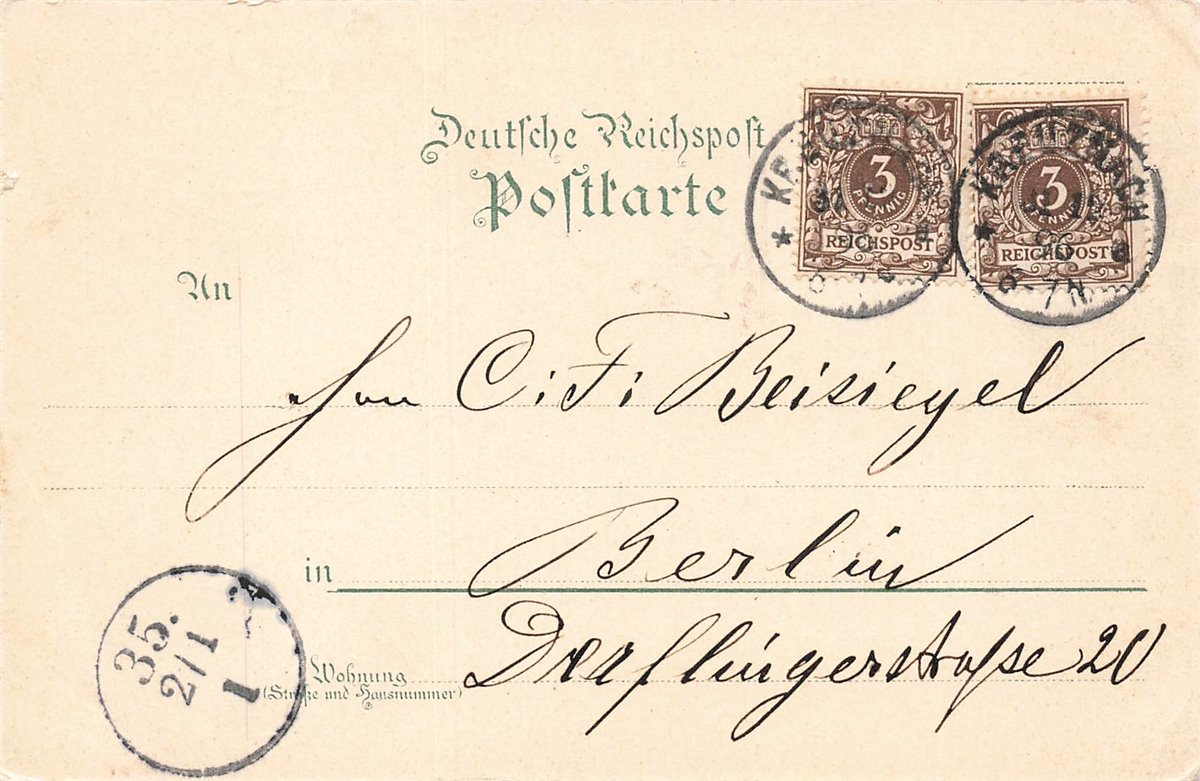 Deutsche Reichspost
Postkarte
3
PFENNIG
REICHSPOST
3
PFENNIG
REICHSPOST
96
6-7N
An
Herrn C. F. Beisiegel
in Berlin
Wohnung
(Straße und Hausnummer)
Derflingerstraße 20
35.
2/1
1